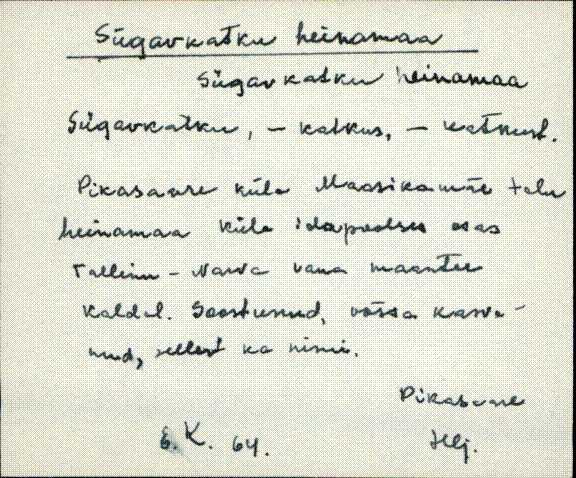 Sügavkatku heinamaa
Sügavkatku heinamaa
Sügavkatku, - katkus, - katkust.
Pikasaare küla Maasikamäe talu
heinamaa küla idapoolses osas
Tallinn - Narva vana maantee
kaldal. Soostunud, võssa kasva-
nud, sellest ka nimi.
Pikasaare
K. 64. Hlj.